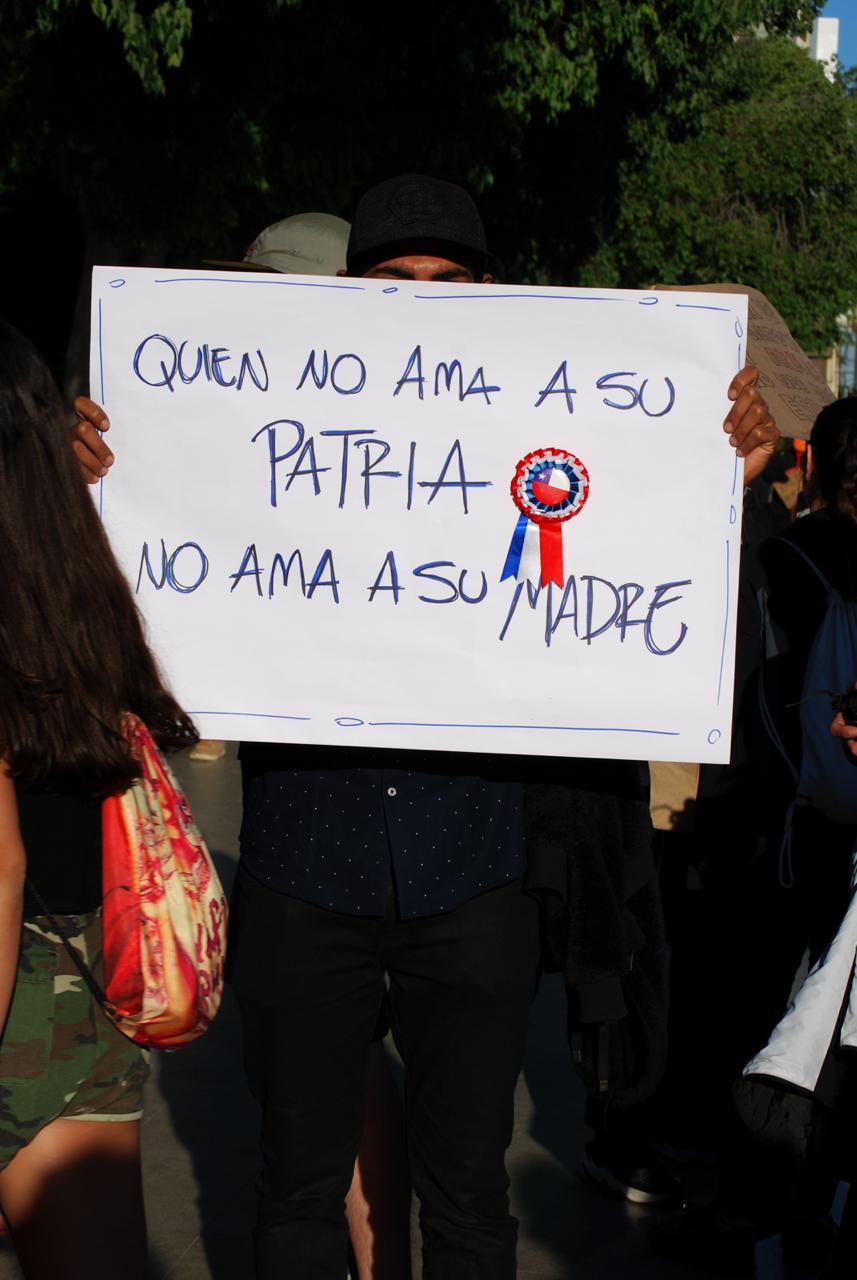 QUIEN NO AMA A SU
PATRIA
NO AMA A SU MADRE